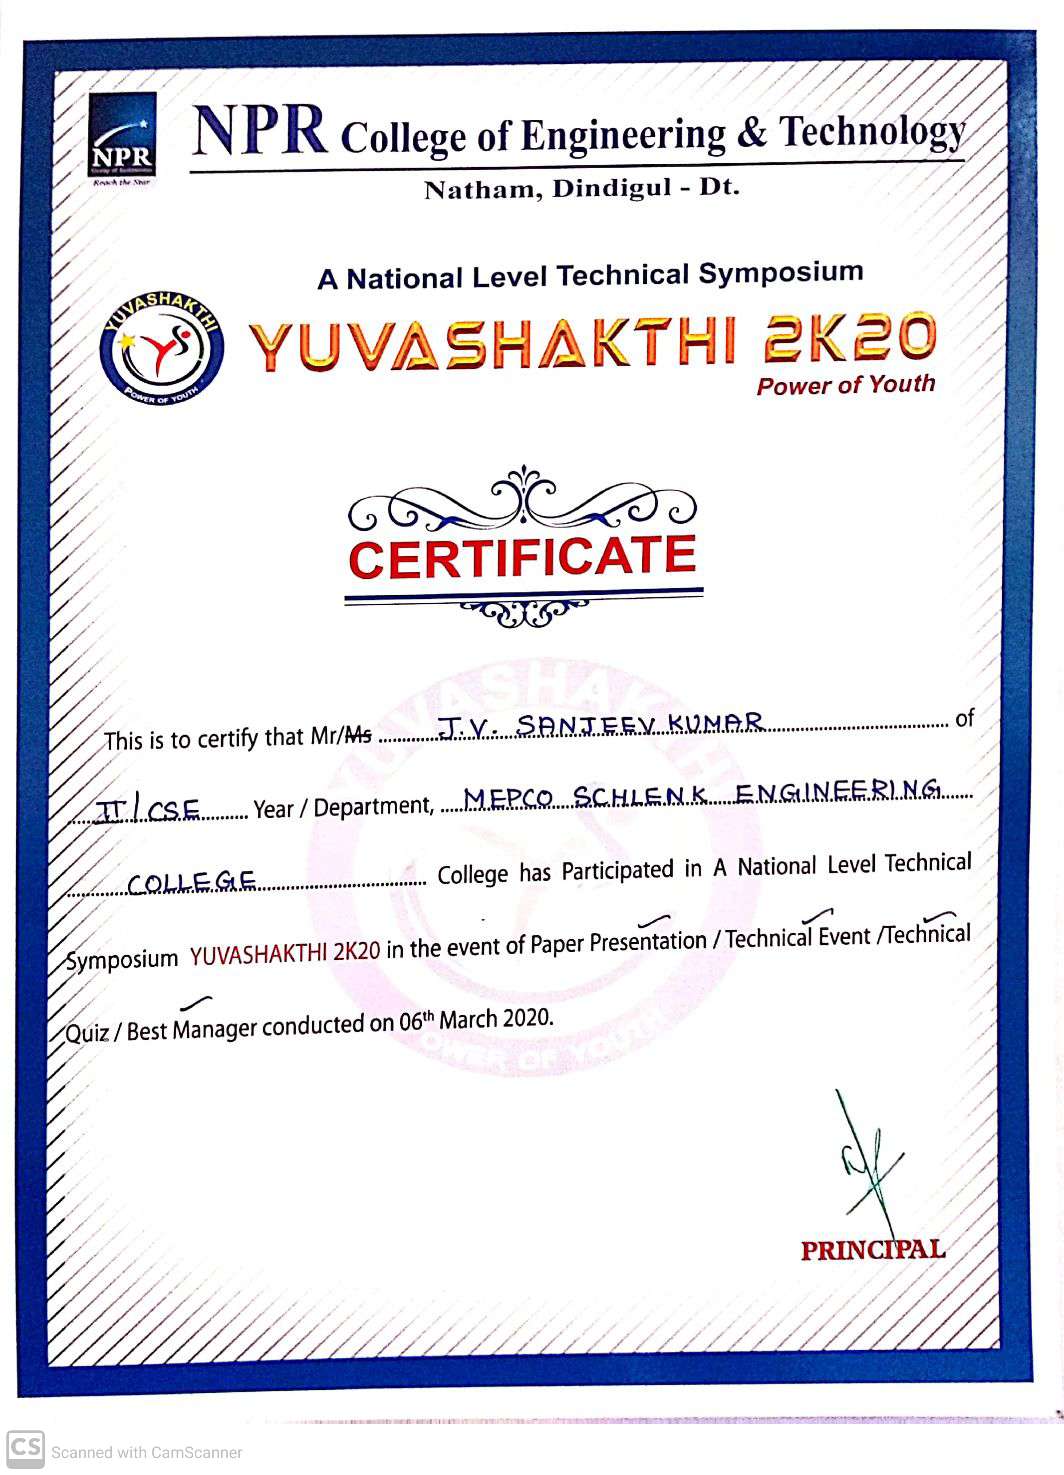 NPR
Reach the Star
NPR College of Engineering & Technology
Natham, Dindigul - Dt.
A National Level Technical Symposium
YUVASHAKTHI
POWER OF YOUTH
YUVASHAKTHI 2K20
Power of Youth
CERTIFICATE
This is to certify that Mr/Ms J.V. SANJEEV KUMAR of
II/CSE Year / Department, MEPCO SCHLENK ENGINEERING
COLLEGE College has Participated in A National Level Technical
Symposium YUVASHAKTHI 2K20 in the event of Paper Presentation / Technical Event /Technical
Quiz / Best Manager conducted on 06th March 2020.
YUVASHAKTHI
POWER OF YOUTH
PRINCIPAL
CS Scanned with CamScanner